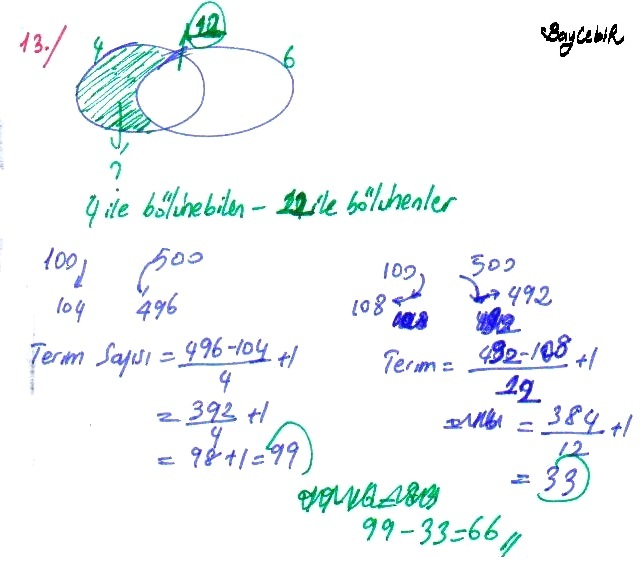 13./
4
12
6
BayCebiR
?
4 ile bölünebilen - 12 ile bölünenler
100 500
104 496
Terim Sayısı = 496-104 / 4 +1
= 392 / 4 +1
= 98+1=99
100 500
108 492
Terim = 492-108 / 12 +1
= 384 / 12 +1
= 33
99-33=66//